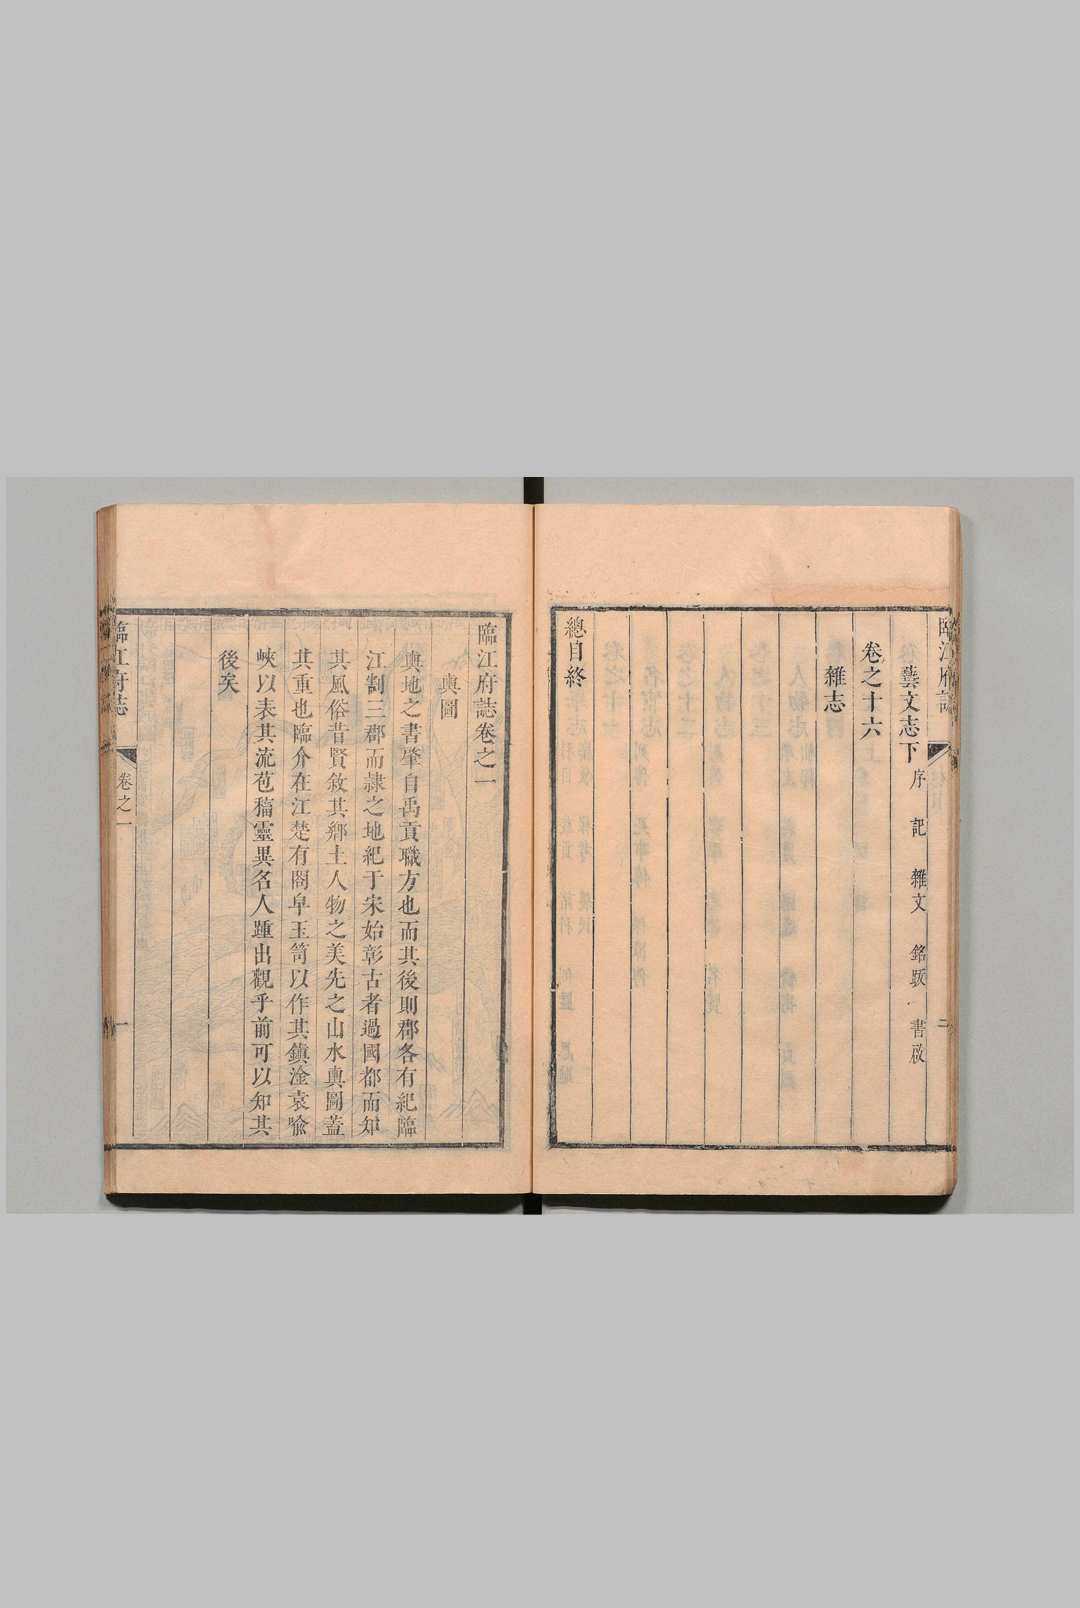 臨江府誌
二
藝文志下 序 記 雜文 銘䟦 書啟
卷之十六
雜志
總目終
臨江府誌卷之一
輿圖
輿地之書肇自禹貢職方也而其後則郡各有紀臨
江割三郡而隷之地紀于宋始彰古者過國都而知
其風俗昔賢敘其鄉土人物之美先之山水輿圖蓋
其重也臨介在江楚有閤皁玉笥以作其鎮淦袁喩
峽以表其流苞稸靈異名人踵出觀乎前可以知其
後矣
臨江府誌
卷之一
一